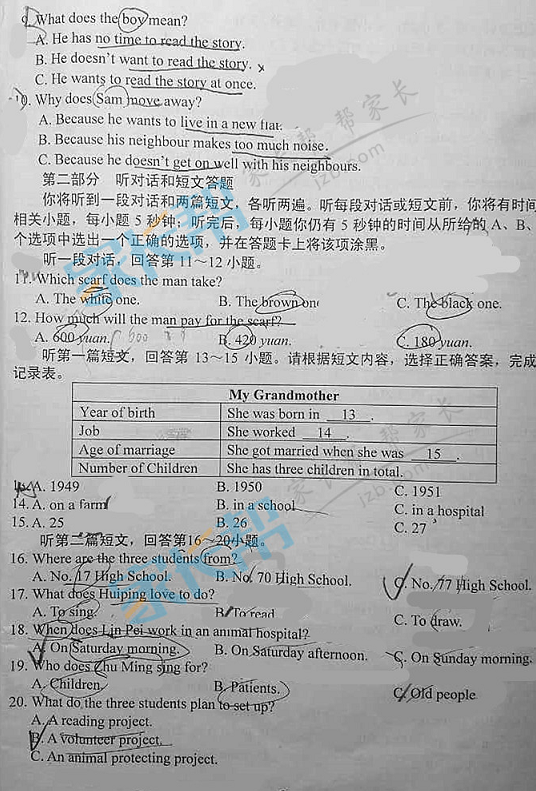 9. What does the boy mean?
A. He has no time to read the story.
B. He doesn't want to read the story.
C. He wants to read the story at once.
10. Why does Sam move away?
A. Because he wants to live in a new flat.
B. Because his neighbour makes too much noise.
C. Because he doesn't get on well with his neighbours.
第二部分 听对话和短文答题
你将听到一段对话和两篇短文，各听两遍。听每段对话或短文前，你将有时间
相关小题，每小题 5 秒钟；听完后，每小题你仍有 5 秒钟的时间从所给的 A、B、
个选项中选出一个正确的选项，并在答题卡上将该项涂黑。
听一段对话，回答第 11～12 小题。
11. Which scarf does the man take?
A. The white one. B. The brown one C. The black one.
12. How much will the man pay for the scarf?
A. 600 yuan. B. 420 yuan. C. 180 yuan.
听第一篇短文，回答第 13～15 小题。请根据短文内容，选择正确答案，完成
记录表。
My Grandmother
Year of birth She was born in 13.
Job She worked 14.
Age of marriage She got married when she was 15.
Number of Children She has three children in total.
A. 1949 B. 1950 C. 1951
14. A. on a farm B. in a school C. in a hospital
15. A. 25 B. 26 C. 27
听第二篇短文，回答第16～20小题。
16. Where are the three students from?
A. No. 17 High School. B. No. 70 High School. C. No. 77 High School.
17. What does Huiping love to do?
A. To sing. B. To read C. To draw.
18. When does Lin Pei work in an animal hospital?
A. On Saturday morning. B. On Saturday afternoon. C. On Sunday morning.
19. Who does Chu Ming sing for?
A. Children. B. Patients. C. Old people
20. What do the three students plan to set up?
A. A reading project.
B. A volunteer project.
C. An animal protecting project.
家长帮
jzb.com